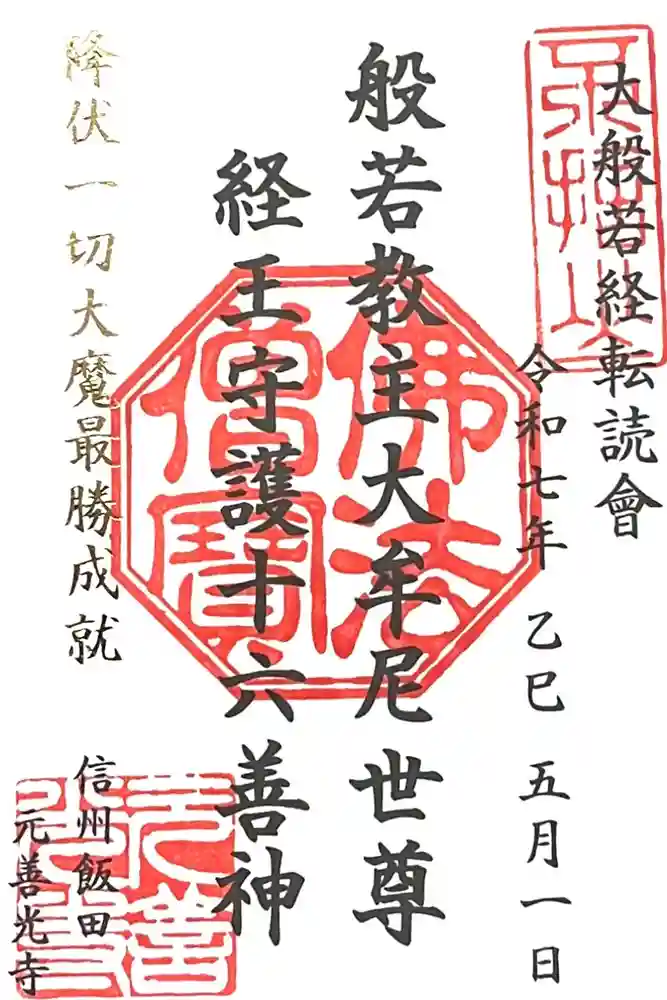 大般若経転読會
令和七年 乙巳 五月一日
般若教主大牟尼世尊
経王守護十六善神
降伏一切大魔最勝成就
信州飯田
元善光寺
佛法僧寶
元善光寺